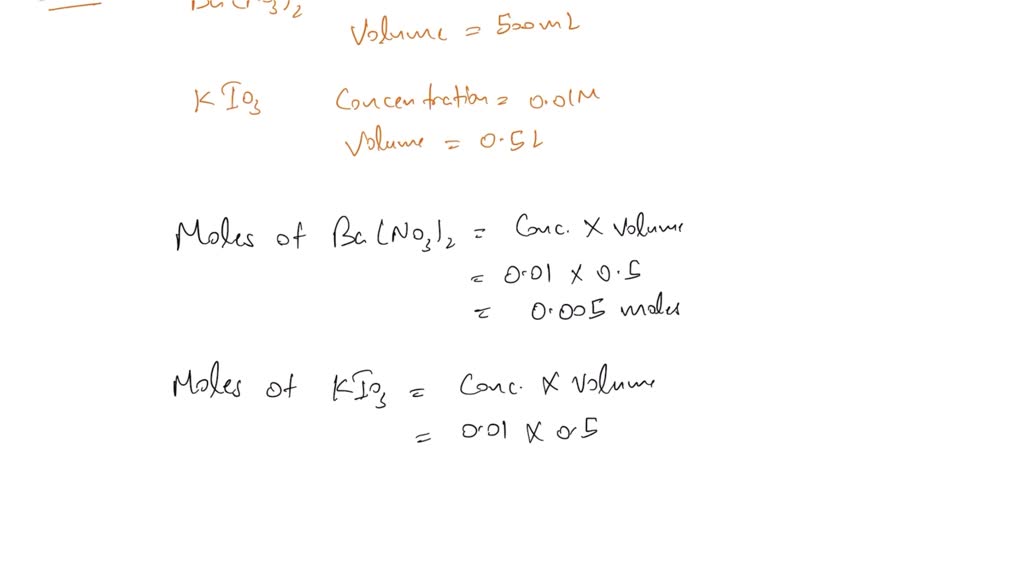 Ba(NO3)2
Volume = 500mL
KIO3 Concentration = 0.01M
Volume = 0.5L
Moles of Ba(NO3)2 = Conc. X Volume
= 0.01 X 0.5
= 0.005 moles
Moles of KIO3 = Conc. X Volume
= 0.01 X 0.5